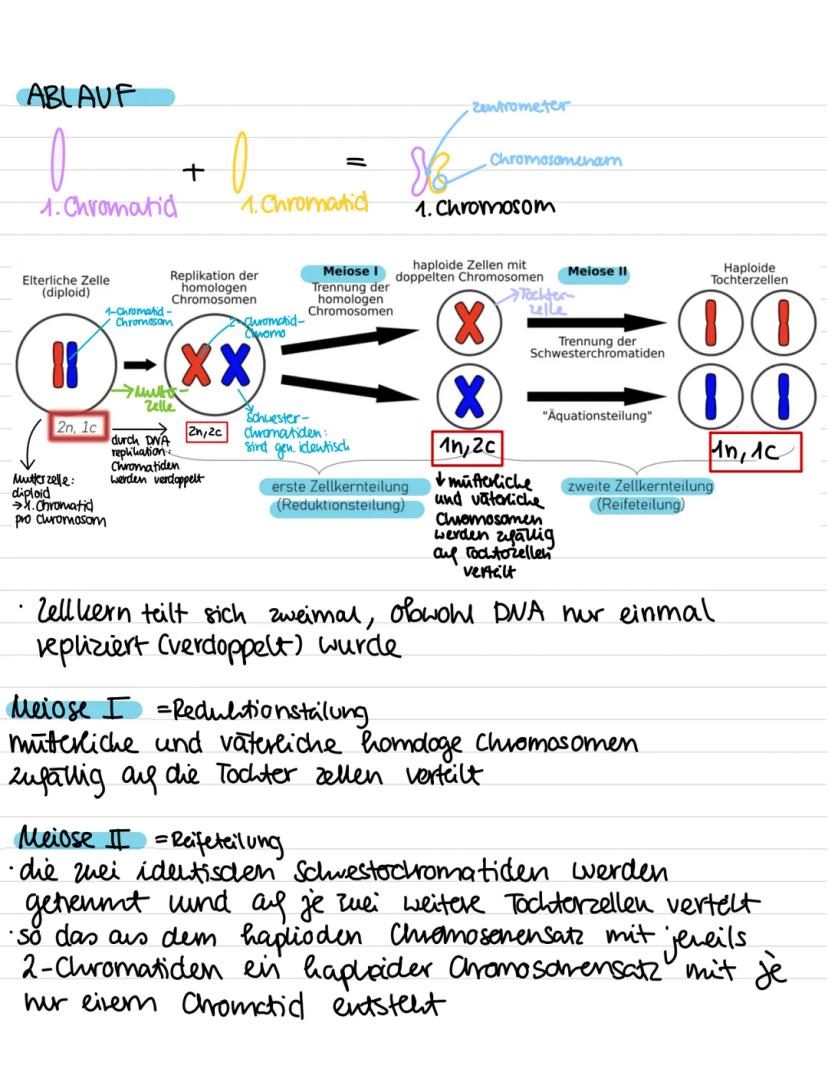 ABLAUF
zentrometer
Chromosomenarm
+
=
1. Chromatid
1. Chromatid
1. Chromosom
Elterliche Zelle
(diploid)
Replikation der
homologen
Chromosomen
Meiose I
Trennung der
homologen
Chromosomen
haploide Zellen mit
doppelten Chromosomen
Meiose II
Haploide
Tochterzellen
1-Chromatid-
Chromosom
2-Chromatid-
Chromo
→Tochter-
zelle
Trennung der
Schwesterchromatiden
"Äquationsteilung"
→Mutter-
zelle
Schwester-
chromatiden:
sind gen. identisch
2n, 1c
durch DNA
replikation:
Chromatiden
werden verdoppelt
2n,2c
1n,2c
1n, 1c
Mutterzelle:
diploid
→1. Chromatid
pro Chromosom
erste Zellkernteilung
(Reduktionsteilung)
↓ mütterliche
und väterliche
Chromosomen
werden zufällig
auf Tochterzellen
verteilt
zweite Zellkernteilung
(Reifeteilung)
· Zellkern teilt sich zweimal, obwohl DNA nur einmal
repliziert (verdoppelt) wurde
Meiose I =Reduktionsteilung
mütterliche und väterliche homologe Chromosomen
zufällig auf die Tochter zellen verteilt
Meiose II =Reifeteilung
· die zwei identischen Schwesterchromatiden werden
getrennt und auf je zwei weitere Tochterzellen verteilt
· so das aus dem haplioden Chromosomensatz mit jeweils
2-Chromatiden ein haploider Chromosomensatz mit je
nur einem Chromatid entsteht